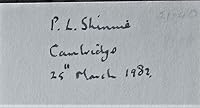 P. L. Shinnie
Cambridge
25th March 1982